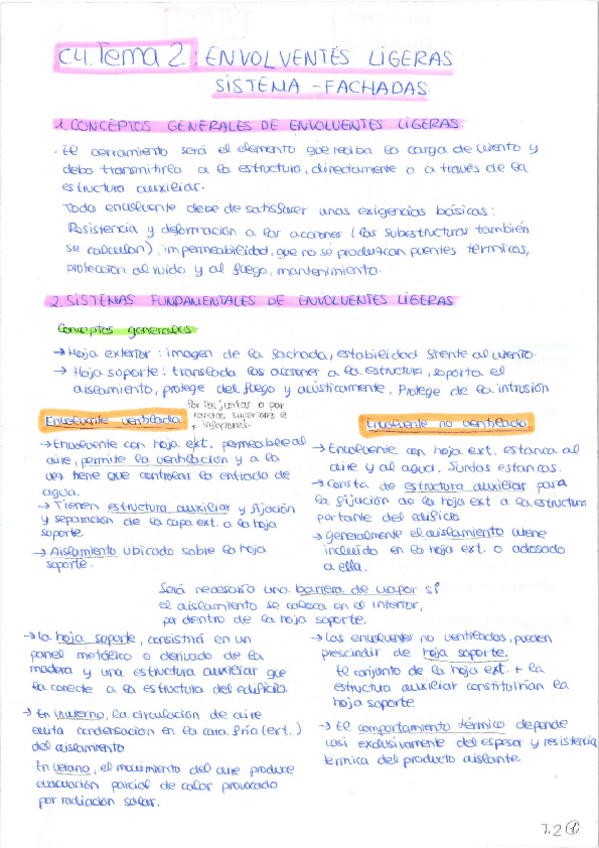 C4. Tema 2: ENVOLVENTES LIGERAS
SISTEMA - FACHADAS.
1. CONCEPTOS GENERALES DE ENVOLVENTES LIGERAS.
· El cerramiento será el elemento que reciba la carga de viento y
debe transmitirla a la estructura, directamente o a través de la
estructura auxiliar.
Todo envolvente debe de satisfacer unas exigencias básicas:
Resistencia y deformación a las acciones (las subestructuras también
se calculan), impermeabilidad, que no se produzcan puentes térmicos,
protección al ruido y al fuego, mantenimiento.
2. SISTEMAS FUNDAMENTALES DE ENVOLVENTES LIGERAS
Conceptos generales
→ Hoja exterior: imagen de la fachada, estabilidad frente al viento.
→ Hoja soporte: traslada las acciones a la estructura, soporta el
aislamiento, protege del fuego y acústicamente, Protege de la intrusión
Envolvente ventilada
Por las juntas o por
ranuras superiores e
inferiores.
→ Envolvente con hoja ext. permeable al
aire, permite la ventilación y a la
vez tiene que controlar la entrada de
agua.
→ Tienen estructura auxiliar y fijación
y separación de la capa ext. a la hoja
soporte.
→ Aislamiento ubicado sobre la hoja
soporte.
Envolvente no ventilada
→ Envolvente con hoja ext. estanca al
aire y al agua. Juntas estancas.
→ Consta de estructura auxiliar para
la fijación de la hoja ext a la estructura
portante del edificio
→ generalmente el aislamiento viene
incluido en la hoja ext. o adosado
a ella.
Será necesario una barrera de vapor si
el aislamiento se coloca en el interior,
por dentro de la hoja soporte.
→ La hoja soporte, consistirá en un
panel metálico o derivado de la
madera y una estructura auxiliar que
la conecte a la estructura del edificio.
→ En invierno, la circulación de aire
evita condensación en la cara fría (ext.)
del aislamiento
En verano, el movimiento del aire produce
evacuación parcial de calor provocado
por radiación solar.
→ Las envolventes no ventiladas, pueden
prescindir de hoja soporte.
El conjunto de la hoja ext + la
estructura auxiliar constituirían la
hoja soporte
→ El comportamiento térmico depende
casi exclusivamente del espesor y resistencia
térmica del producto aislante.
T.2 ①